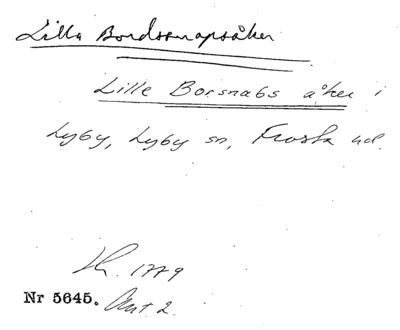 Lilla Bordssnapsåker
Lille Borsnabs åker i
Lyby, Lyby sn, Frosta hd.
Lh. 1779
Nr 5645. Akt 2.